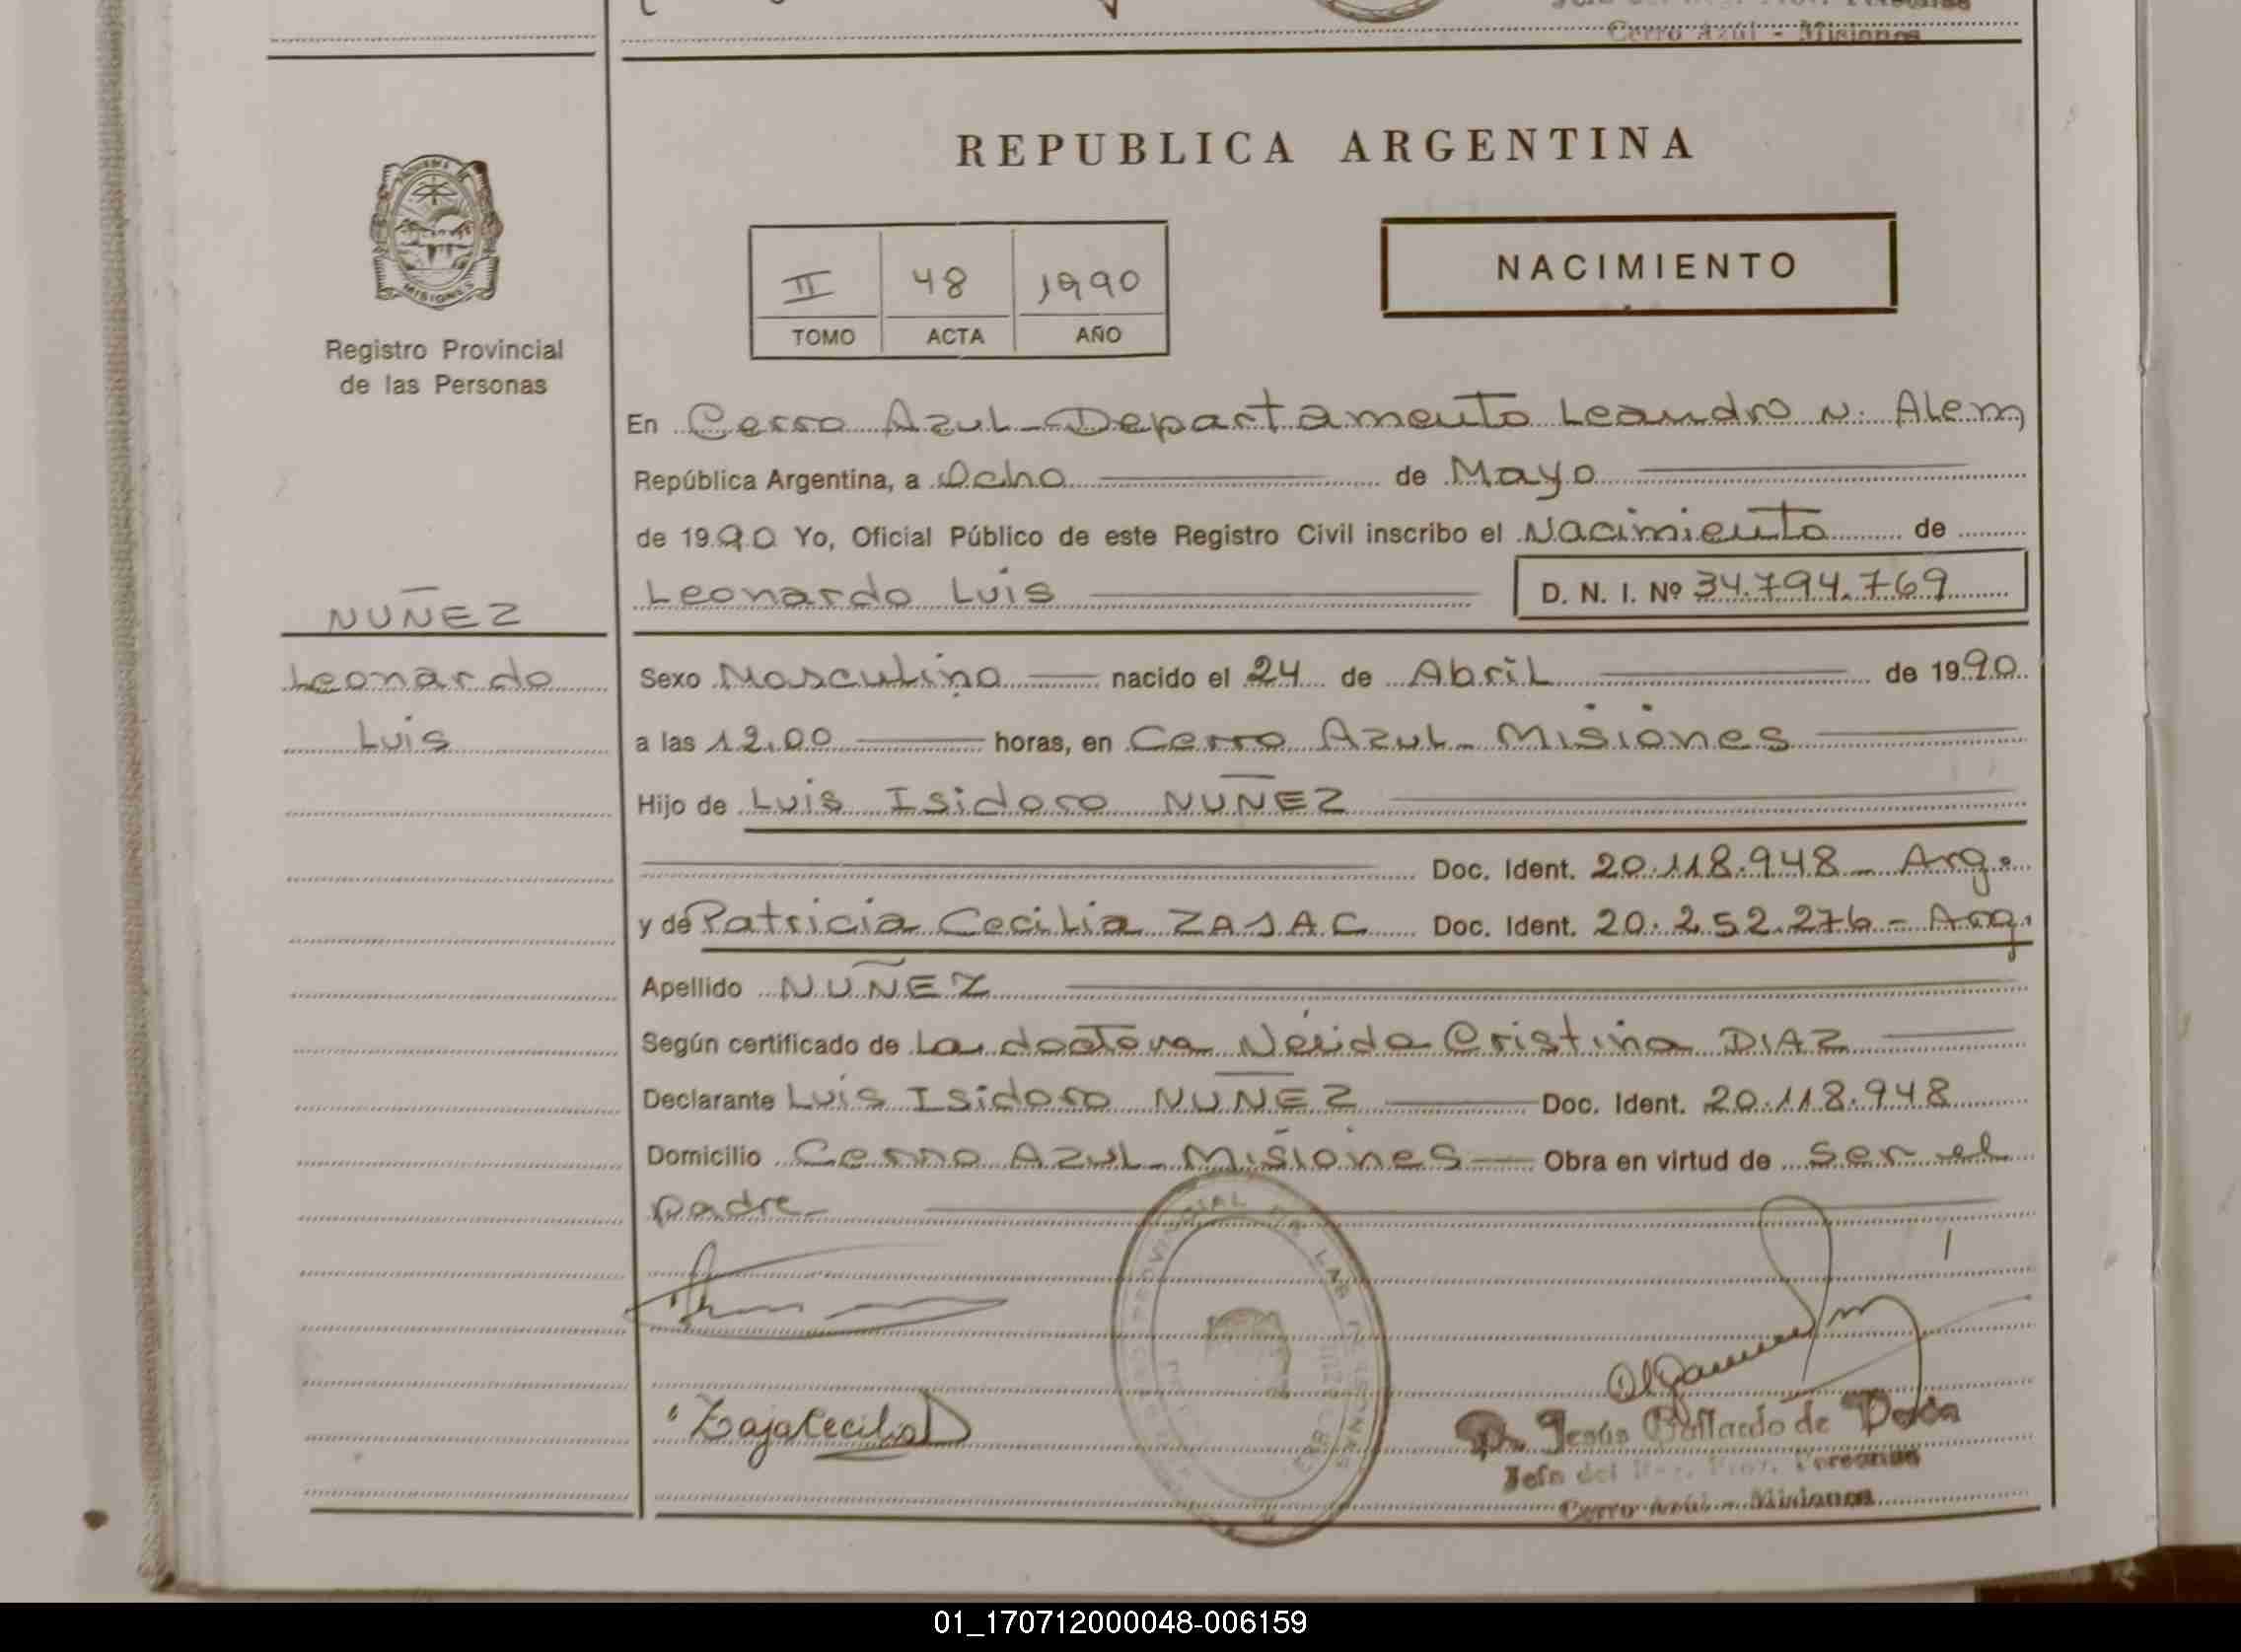 Cerro Azúl - Misiones
REPUBLICA ARGENTINA
MISIONES
Registro Provincial
de las Personas
II 48 1990
TOMO ACTA AÑO
NACIMIENTO
En Cerro Azul - Departamento Leandro N. Alem
República Argentina, a Ocho de Mayo
de 1990 Yo, Oficial Público de este Registro Civil inscribo el Nacimiento de
Leonardo Luis D. N. I. Nº 34.794.769
NUÑEZ
Leonardo
Luis
Sexo Masculino nacido el 24 de Abril de 1990
a las 12,00 horas, en Cerro Azul - Misiones
Hijo de Luis Isidoro NUÑEZ
Doc. Ident. 20.118.948 - Arg.
y de Patricia Cecilia ZAJAC Doc. Ident. 20.252.276 - Arg.
Apellido NUÑEZ
Según certificado de La doctora Nélida Cristina DIAZ
Declarante Luis Isidoro NUÑEZ Doc. Ident. 20.118.948
Domicilio Cerro Azul - Misiones Obra en virtud de ser el
padre -
Zajac Cecilia
Jesús Gallardo de
Jefe del Reg. Prov. Personas
Cerro Azúl - Misiones
01_170712000048-006159